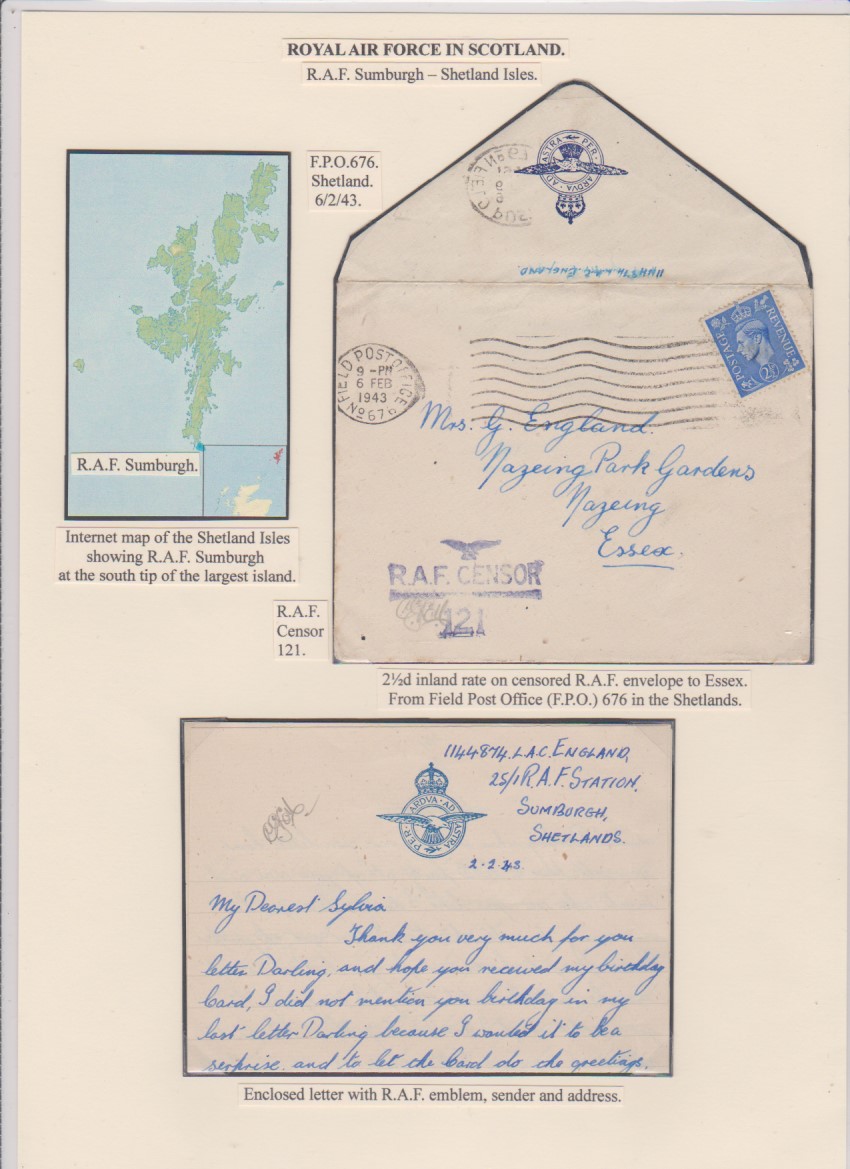 ROYAL AIR FORCE IN SCOTLAND.
R.A.F. Sumburgh – Shetland Isles.
F.P.O.676.
Shetland.
6/2/43.
PER ARDVA AD ASTRA
1144874 L.A.C. ENGLAND.
POSTAGE REVENUE
2½D
FIELD POST OFFICE
9 - PM
6 FEB
1943
No 676
Mrs. G. England.
Nazeing Park Gardens
Nazeing
Essex.
R.A.F. Sumburgh.
Internet map of the Shetland Isles
showing R.A.F. Sumburgh
at the south tip of the largest island.
R.A.F. CENSOR
121
R.A.F.
Censor
121.
2½d inland rate on censored R.A.F. envelope to Essex.
From Field Post Office (F.P.O.) 676 in the Shetlands.
1144874. L.A.C. ENGLAND,
25/1 R.A.F. STATION.
SUMBURGH,
SHETLANDS.
2.2.43.
PER · ARDVA · AD · ASTRA
My Dearest Sylvia
Thank you very much for you
letter Darling, and hope you received my birthday
Card, I did not mention you birthday in my
last letter Darling because I wanted it to be a
serprise. and to let the Card do the greetings.
Enclosed letter with R.A.F. emblem, sender and address.